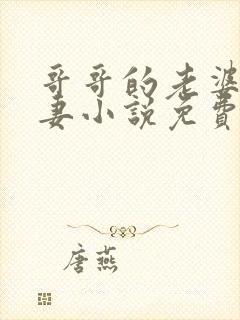 哥哥的老婆
妻小說免費
唐燕